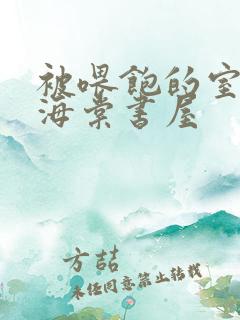 被喂飽的室
海棠書屋
方喆
未经同意禁止转载